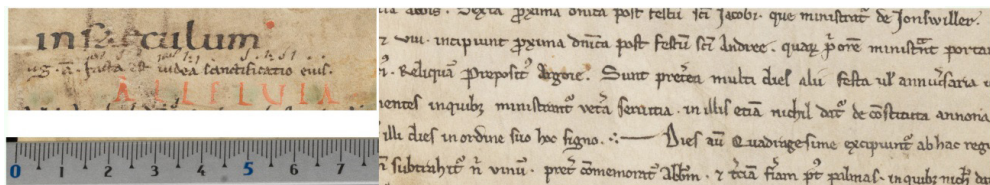 in sæculum
ug. a. facta est iudea sanctificatio eius.
ALLELUIA
0 1 2 3 4 5 6 7
abbis. Sexta p̄xima dn̄ica post festū sc̄i Jacobi. que ministrat᷑ de Jonswiller.
⁊ viii. incipiunt p̄xima dn̄ica post festū sc̄i Andree. quaꝝ p̄ore ministrāt portar
Reliquā p̄posit᷒ Argoie. Sunt p̄terea multi dies alii festa ul᷑ annuūsaria
entes in quib᷒ ministrant᷑ seruitia. in illis etiā nichil dat᷑ de cōstituta annona
illi dies in ordine suo hoc signo. Dies aū Quadragesime excipiunt᷑ ab hac regu
subtrahit᷑ vinū. p̄t cōmemorat᷑ ⁊ t̄ciā fīam pꝰ palmas. in quib᷒ nich̄